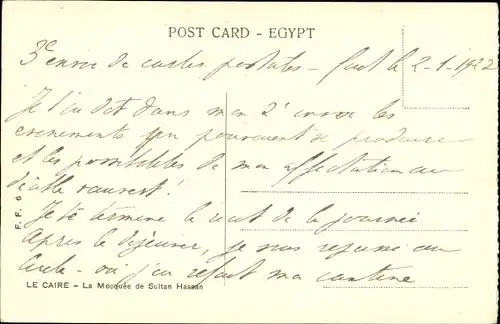 POST CARD - EGYPT
3e envoi de cartes postales - fait le 2-1-1922
Je t'ai dit dans mon 2e envoi les
evenements qui pouvaient se produire
et les possibilités de mon affectation au
diable vauvert!
Je te termine le récit de la journée
Après le déjeuner, je me au
Cercle - où j'ai refait ma cantine
F. F. 6
LE CAIRE - La Mosquée de Sultan Hassan